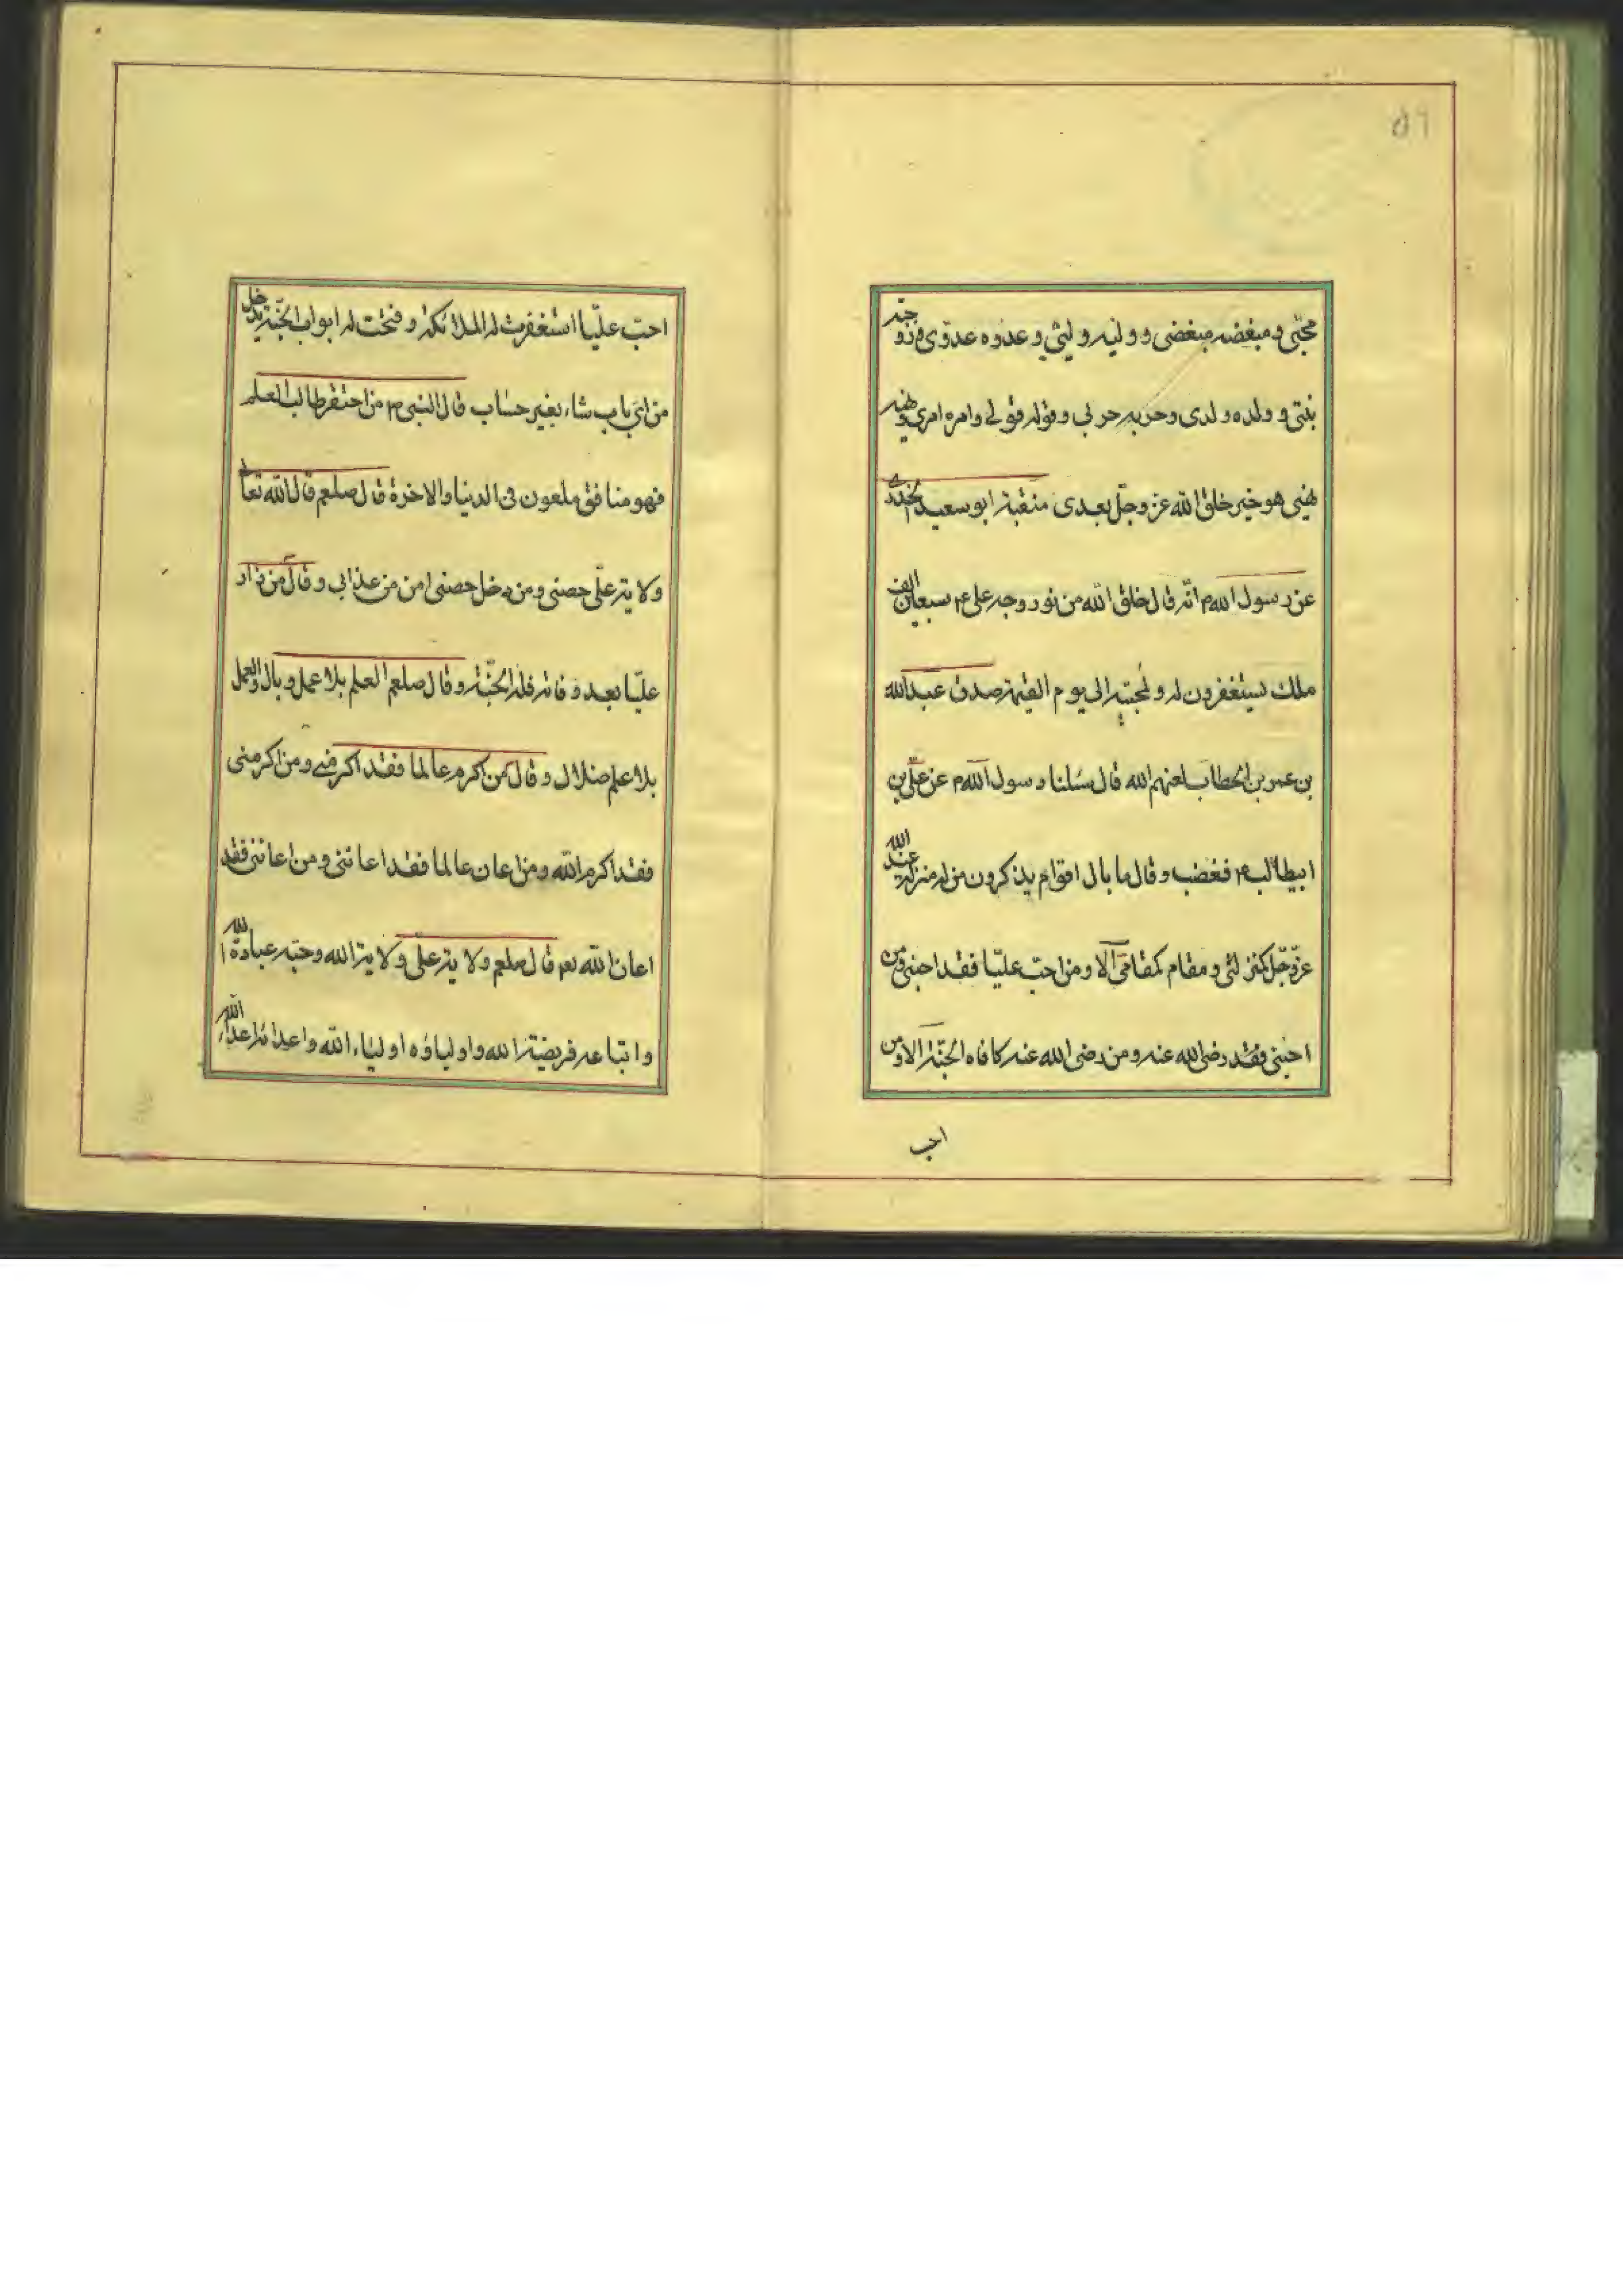 ٥٦
محبّى و مبغضه مبغضى و وليه و ليّى و عدوه عدوّى و زوجته
بنتى و ولده ولدى و حزبه حزبى و قوله قولى و امره امرى و نهيه
نهيى هو خير خلق الله عز و جلّ بعدى منقبة ابو سعيد الخدرى
عن رسول الله ص انّه قال خلق الله من نور وجه على ع سبعين الف
ملك يستغفرون له و لمحبّيه الى يوم القيمة صدق عبدالله
بن عمر بن الخطاب لعنهم الله قال سئلنا رسول الله ص عن علىّ بن
ابيطالب ع فغضب و قال ما بال اقوام يذكرون من له منزلة عند الله
عزّ و جّل كمنزلتى و مقام كمقامى الا و من احبّ عليّا فقد احبنى و من
احبنى فقد رضى الله عنه و من رضى الله عنه كافاه الجنّة الا و من
احب
احبّ عليّا استغفرت له الملائكة و فتحت له ابواب الجنّة يدخل
من اى باب شاء بغير حساب قال النبى ص من احتقر طالب العلم
فهو منافق ملعون فى الدنيا و الاخرة قال صلعم قال الله تعالى
ولاية علّى حصنى و من دخل حصنى امن من عذابى و قال من زار
عليّا بعد وفاته فله الجنّة و قال صلعم العلم بلا عمل و بال و العمل
بلا علم ضلال و قال من اكرم عالما فقد اكرمنى و من اكرمنى
فقد اكرم الله و من اعان عالما فقد اعاننى و من اعاننى فقد
اعان الله نعم قال صلعم ولاية علّى ولاية الله و حبّه عبادة الله
و اتباعه فريضة الله و اولياؤه اولياء الله و اعدائه اعداء الله